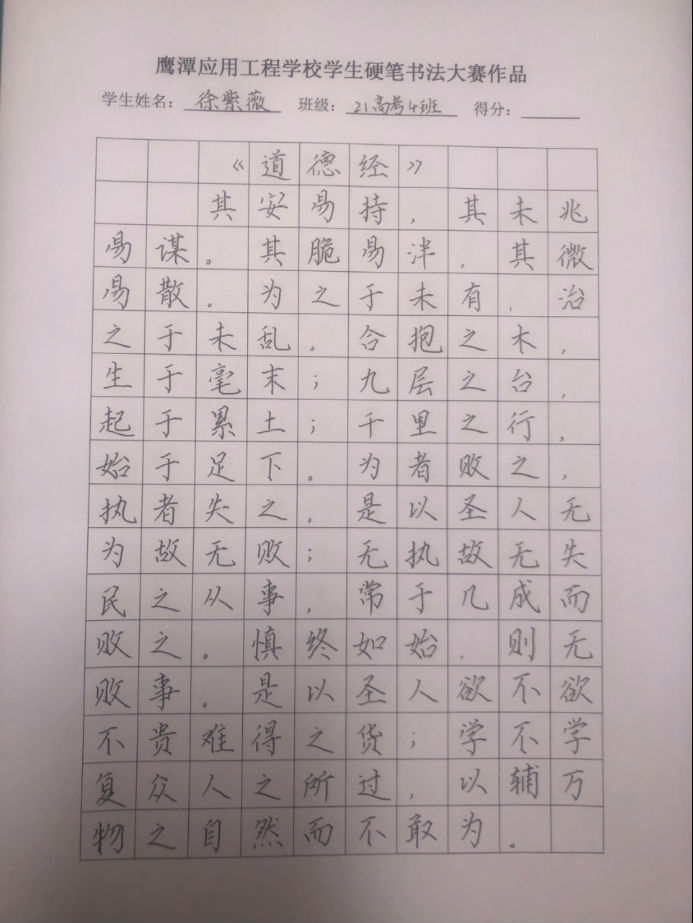 鹰潭应用工程学校学生硬笔书法大赛作品
学生姓名：徐紫薇 班级：21高考4班 得分：
《道德经》
其安易持，其未兆
易谋。其脆易泮，其微
易散。为之于未有，治
之于未乱。合抱之木，
生于毫末；九层之台，
起于累土；千里之行，
始于足下。为者败之，
执者失之。是以圣人无
为故无败；无执故无失
民之从事，常于几成而
败之。慎终如始，则无
败事。是以圣人欲不欲
不贵难得之货；学不学
复众人之所过，以辅万
物之自然而不敢为。